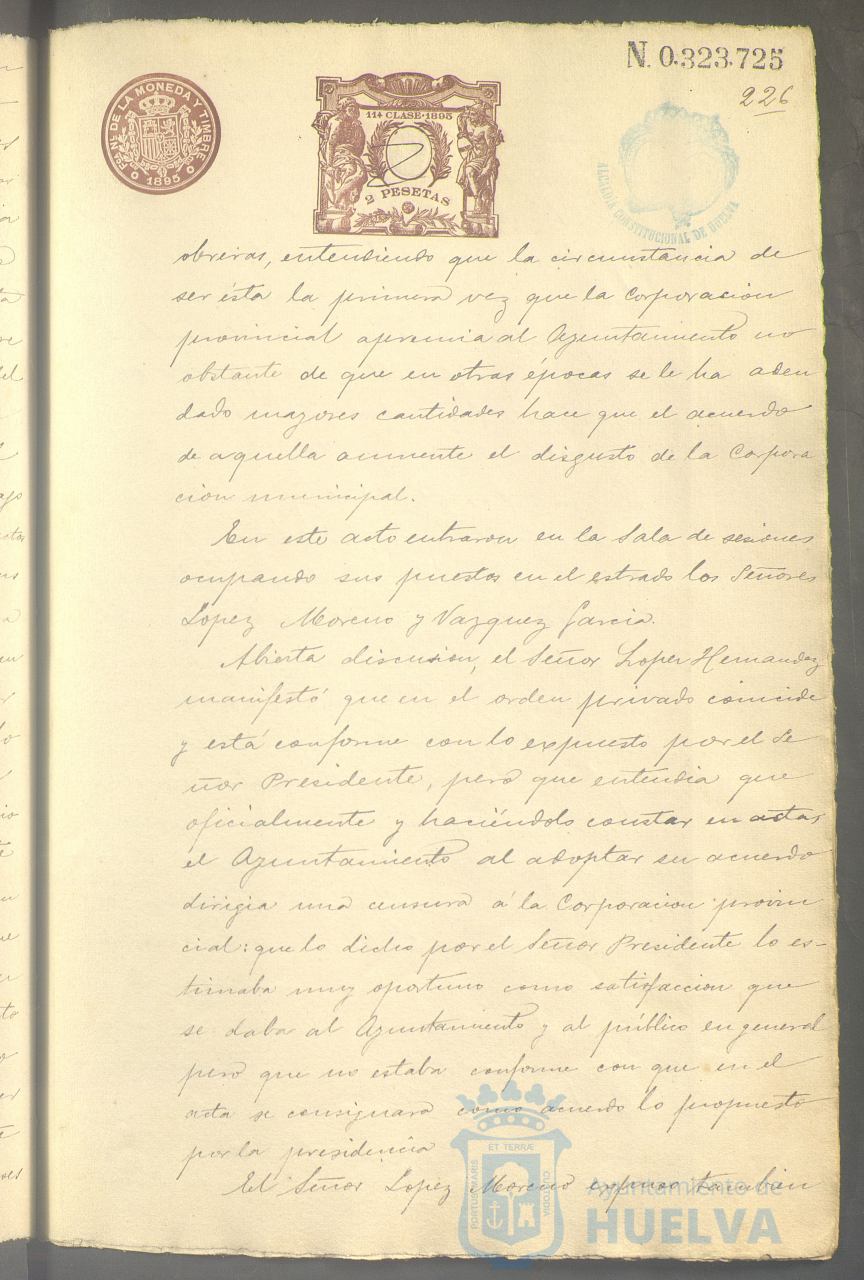 N. 0.323.725
226
Fca. Nl. DE LA MONEDA Y TIMBRE
1895
11ª CLASE·1895
2 PESETAS
ALCALDIA CONSTITUCIONAL DE HUELVA
obreras, entendiendo que la circunstancia de
ser ésta la primera vez que la Corporacion
provincial apremia al Ayuntamiento no
obstante de que en otras épocas se le ha adeu
dado mayores cantidades hace que el acuerdo
de aquella aumente el disgusto de la Corpora
cion municipal.
En este acto entraron en la Sala de sesiones
ocupando sus puestos en el estrado los Señores
Lopez Moreno y Vazquez Garcia.
Abierta discusion, el Señor Lopez Hernandez
manifestó que en el orden privado coincide
y está conforme con lo expuesto por el Se
ñor Presidente, pero que entendia que
oficialmente y haciéndolo constar en acta,
el Ayuntamiento al adoptar su acuerdo
dirigia una censura á la Corporacion provin
cial: que lo dicho por el Señor Presidente lo es-
timaba muy oportuno como satisfaccion que
se daba al Ayuntamiento y al público en general
pero que no estaba conforme con que en el
acta se consignara como acuerdo lo propuesto
por la presidencia
El Señor Lopez Moreno expuso tambien
PORTUS MARIS ET TERRÆ CUSTODIA
Ayuntamiento de
HUELVA